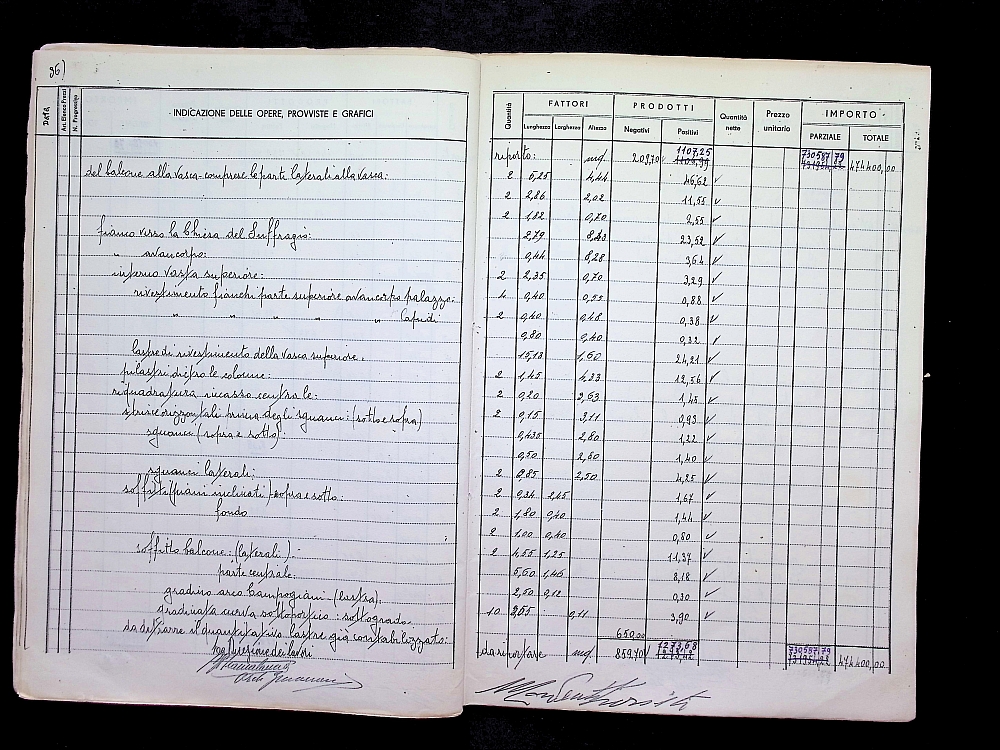 96)
Data
Art. Elenco Prezzi
N. Progressivo
INDICAZIONE DELLE OPERE, PROVVISTE E GRAFICI
del balcone alla vasca - comprese le parte laterali alla vasca:
fianco verso la Chiesa del Suffragio:
" avancorpo:
interno vasca superiore:
rivestimento fianchi parte superiore avancorpo palazzo:
" " " " "
lastre di rivestimento della vasca superiore:
pilastri dietro le colonne:
riquadratura incasso centrale:
strisce orizzontali prima degli sguanci: (sotto e sopra)
sguanci (sopra e sotto):
sguanci laterali:
soffitti (piani inclinati) - sopra e sotto:
fondo
soffitto balcone: (laterali)
parte centrale:
gradino arco Campogiani - (lastra):
gradinata curva sottoportico: sottogrado
da detrarre il quantitativo lastre già contabilizzato:
Direzione dei lavori
Quantità
FATTORI
Lunghezza Larghezza Altezza
PRODOTTI
Negativi Positivi
Quantità nette
Prezzo unitario
IMPORTO
PARZIALE TOTALE
riporto: mq. 209,70 1107,25 730587,79 474400,00
2 5,25 4,44 46,62 ✓
2 2,86 2,02 11,55 ✓
2 1,82 0,70 2,55 ✓
2,79 8,43 23,52 ✓
0,44 8,28 3,64 ✓
2 2,35 0,70 3,29 ✓
4 0,40 0,55 0,88 ✓
2 0,40 0,48 0,38 ✓
0,80 0,40 0,32 ✓
15,13 1,60 24,21 ✓
2 1,45 4,33 12,56 ✓
2 0,20 3,63 1,45 ✓
2 0,15 3,11 0,93 ✓
0,435 2,80 1,22 ✓
0,50 2,80 1,40 ✓
2 0,85 2,50 4,25 ✓
2 0,34 2,45 1,67 ✓
2 1,80 0,40 1,44 ✓
2 1,00 0,40 0,80 ✓
2 4,55 1,25 11,37 ✓
5,60 1,46 8,18 ✓
2,50 0,12 0,30 ✓
10 3,55 0,11 3,90 ✓
650,00
da riportare mq. 859,70 1273,68 730587,79 474400,00